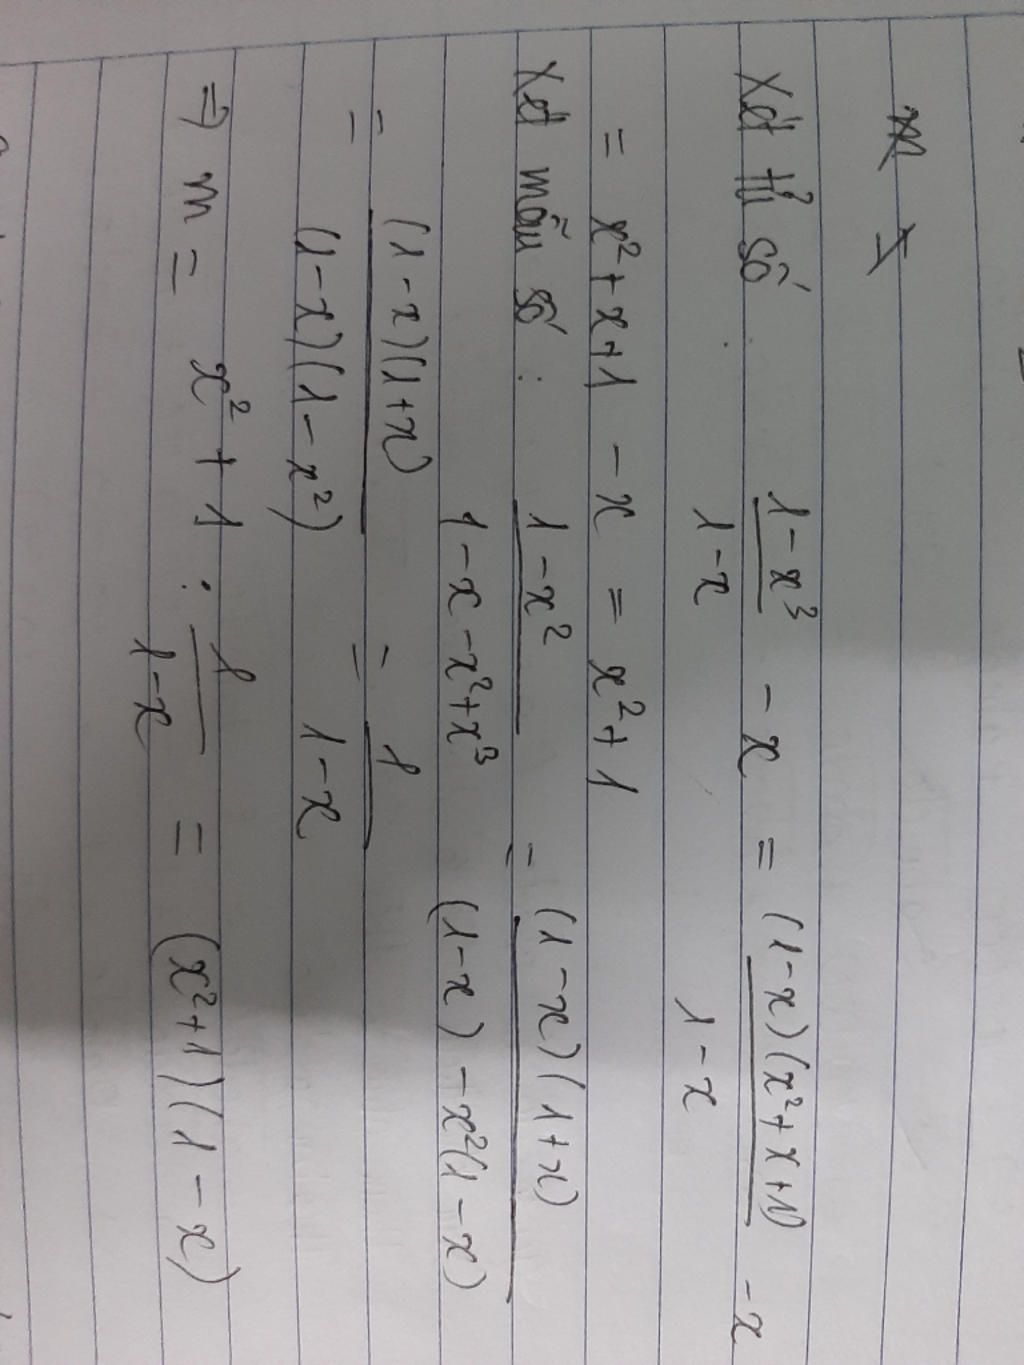 Xét tử số
1-x³ / 1-x - x = (1-x)(x²+x+1) / 1-x - x
= x²+x+1 - x = x²+1
Xét mẫu số : 1-x² / 1-x-x²+x³ = (1-x)(1+x) / (1-x) - x²(1-x)
= (1-x)(1+x) / (1-x)(1-x²) = 1 / 1-x
⇒ m = x²+1 : 1 / 1-x = (x²+1)(1-x)